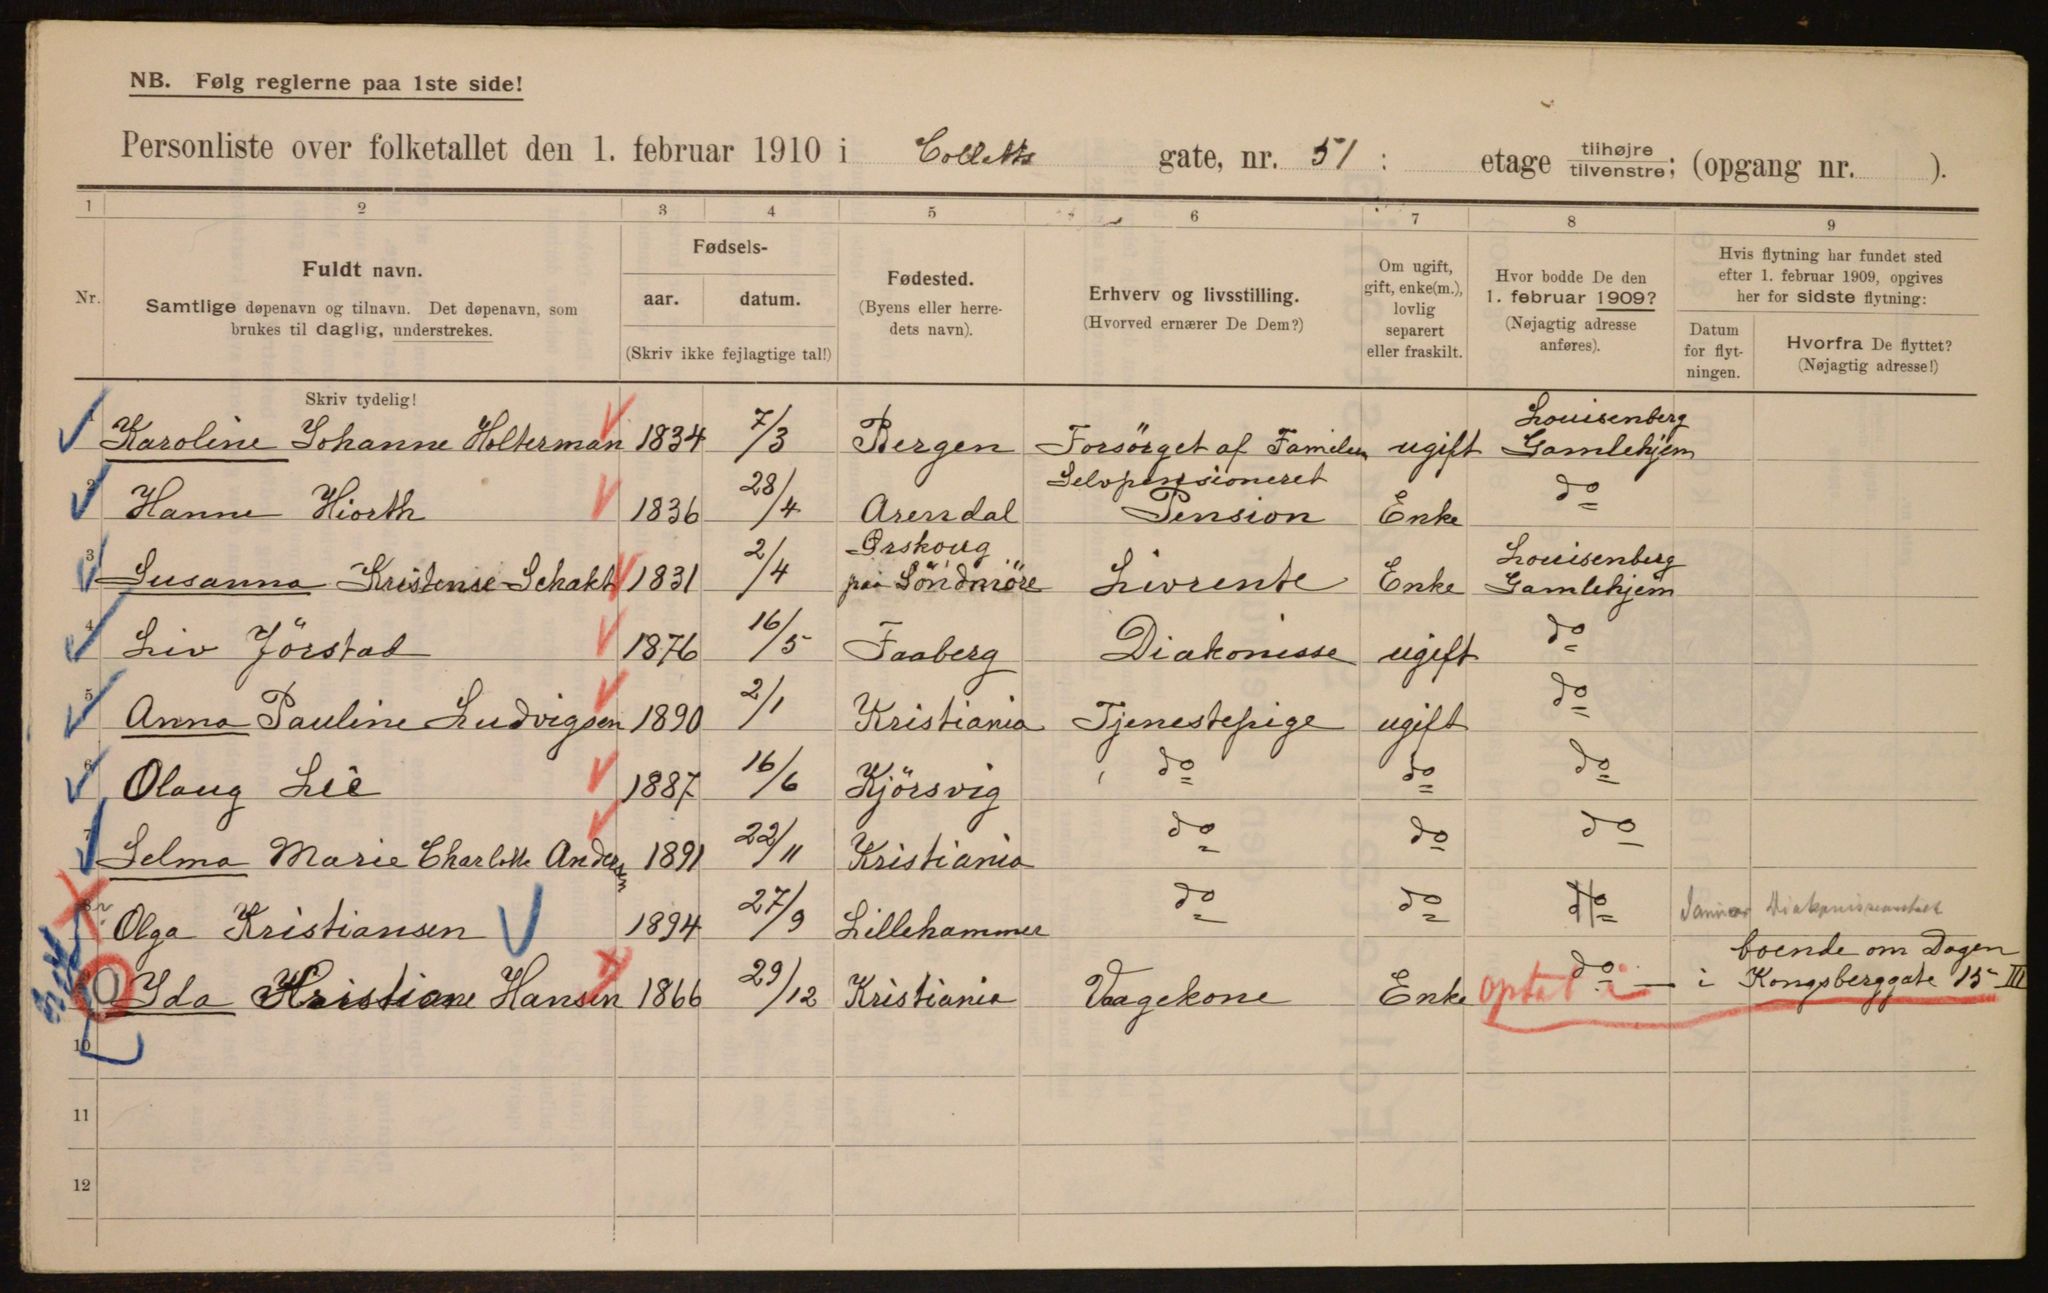 NB. Følg reglerne paa 1ste side!
Personliste over folketallet den 1. februar 1910 i Colletts gate, nr. 51 : etage tilhøjre/tilvenstre; (opgang nr. ).
1 2 3 4 5 6 7 8 9
Nr.
Fuldt navn.
Samtlige døpenavn og tilnavn. Det døpenavn, som
brukes til daglig, understrekes.
Fødsels-
aar. datum.
(Skriv ikke fejlagtige tal!)
Fødested.
(Byens eller herre-
dets navn).
Erhverv og livsstilling.
(Hvorved ernærer De Dem?)
Om ugift,
gift, enke(m.),
lovlig
separert
eller fraskilt.
Hvor bodde De den
1. februar 1909?
(Nøjagtig adresse
anføres).
Hvis flytning har fundet sted
efter 1. februar 1909, opgives
her for sidste flytning:
Datum
for flyt-
ningen.
Hvorfra De flyttet?
(Nøjagtig adresse!)
Skriv tydelig!
1 Karoline Johanne Holterman 1834 7/3 Bergen Forsörget af Familien ugift Louisenberg
Gamlehjem
2 Hanne Hiorth 1836 28/4 Arendal Selvpensioneret
Pension Enke do
3 Susanna Kristense Schakt 1831 2/4 Ørskoug
paa Söndmöre Livrente Enke Louisenberg
Gamlehjem
4 Liv Jörstad 1876 16/5 Faaberg Diakonisse ugift do
5 Anna Pauline Ludvigsen 1890 2/1 Kristiania Tjenestepige ugift do
6 Olaug Lie 1887 16/6 Kjörsvig do do do
7 Selma Marie Charlotte Andersen 1891 22/11 Kristiania do do do
8 Olga Kristiansen 1894 27/9 Lillehammer do do do Januar Diakonisseanstalt
Ida Kristiane Hansen 1866 29/12 Kristiania Vaagekone Enke optat i do boende om Dagen
i Kongsberggate 15 III
10
11
12